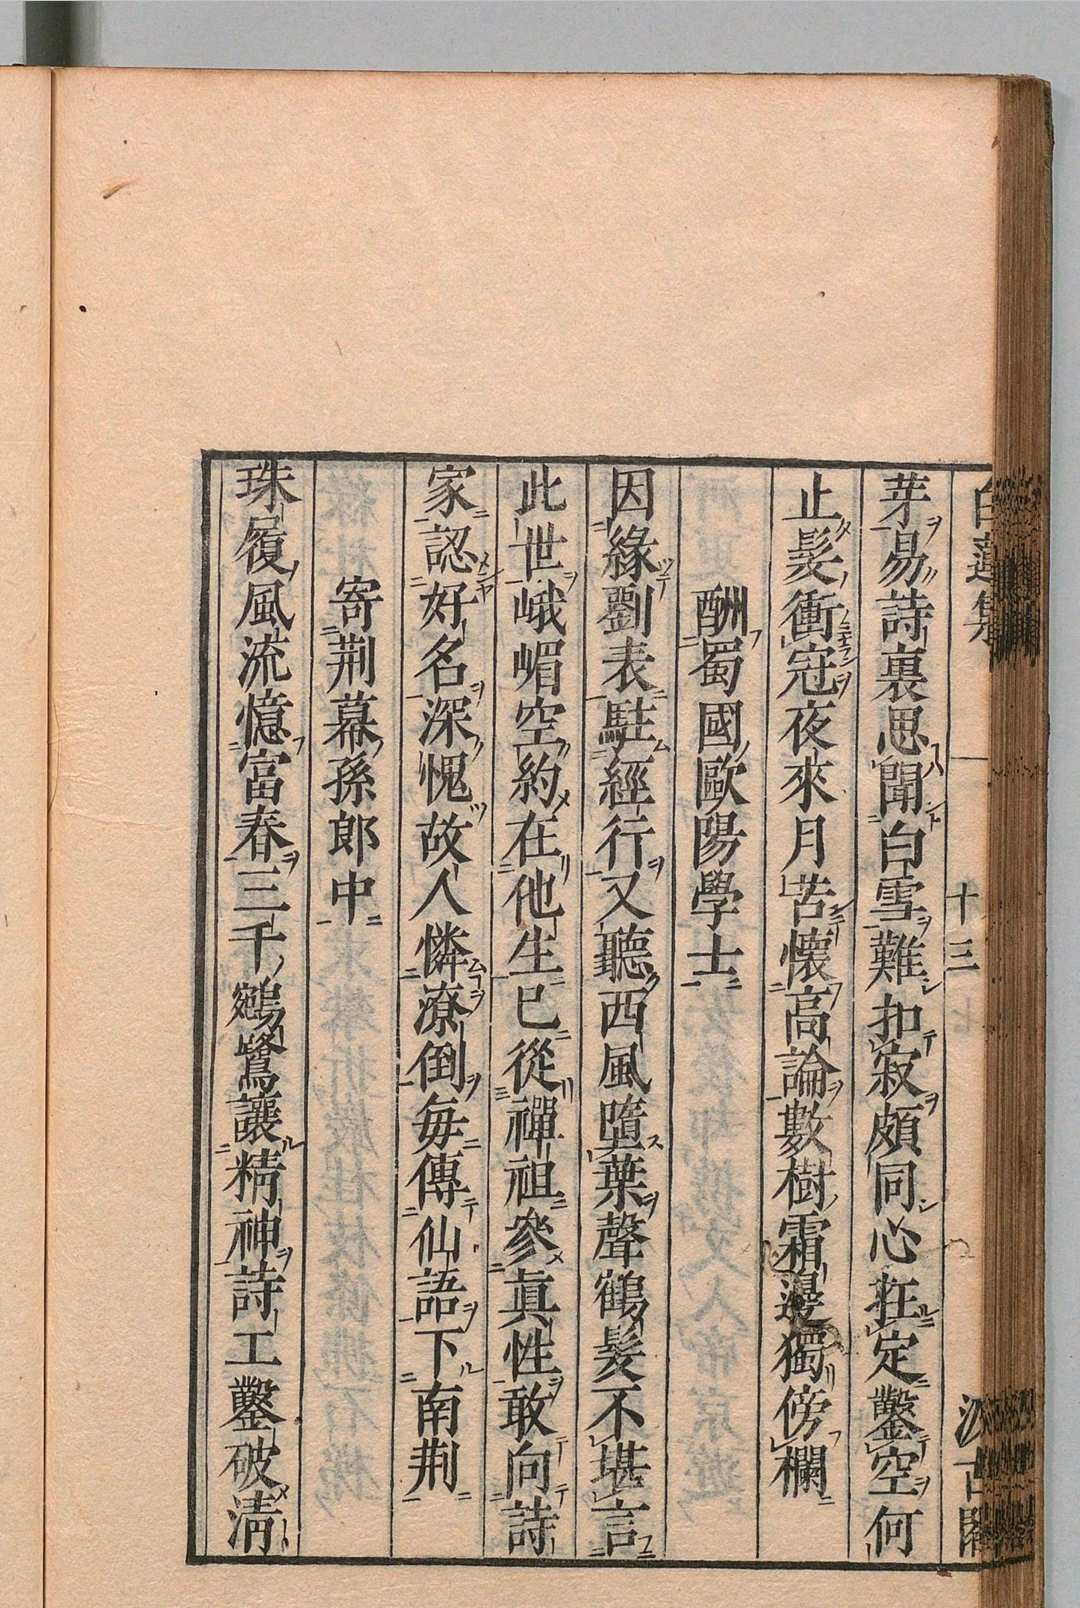 白蓮集 十三 汲古閣
芽易詩裏思聞白雪難扣寂頗同心在定鑿空何
止髮衝冠夜來月苦懷高論數樹霜邊獨傍欄
酬蜀國歐陽學士
因緣劉表駐經行又聽西風墮葉聲鶴髮不堪言
此世峨嵋空約在他生已從禪祖參真性敢向詩
家認好名深愧故人憐潦倒每傳仙語下南荊
寄荊幕孫郎中
珠履風流憶富春三千鵷鷺讓精神詩工鑿破清